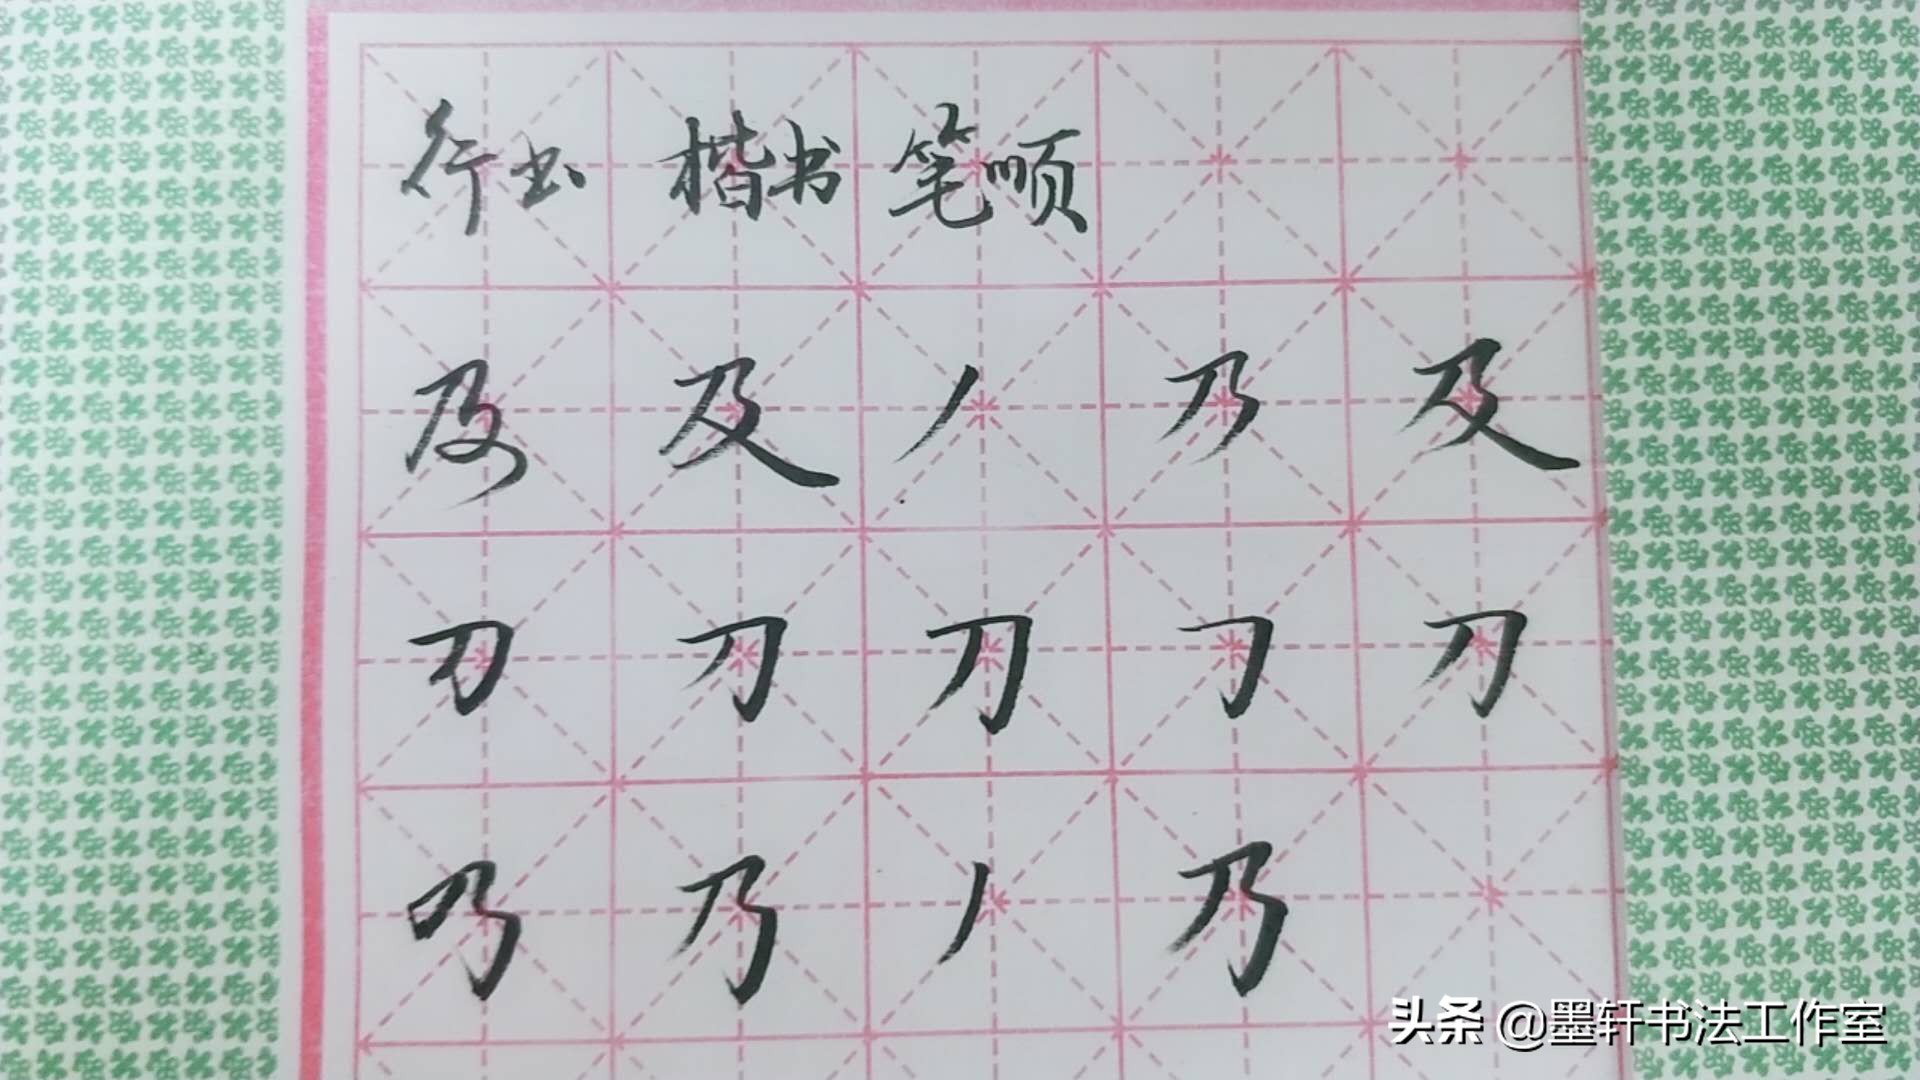 行书 楷书 笔顺
及 及 丿 乃 及
刀 刀 刀 𠃌 刀
乃 乃 丿 乃
头条 @墨轩书法工作室